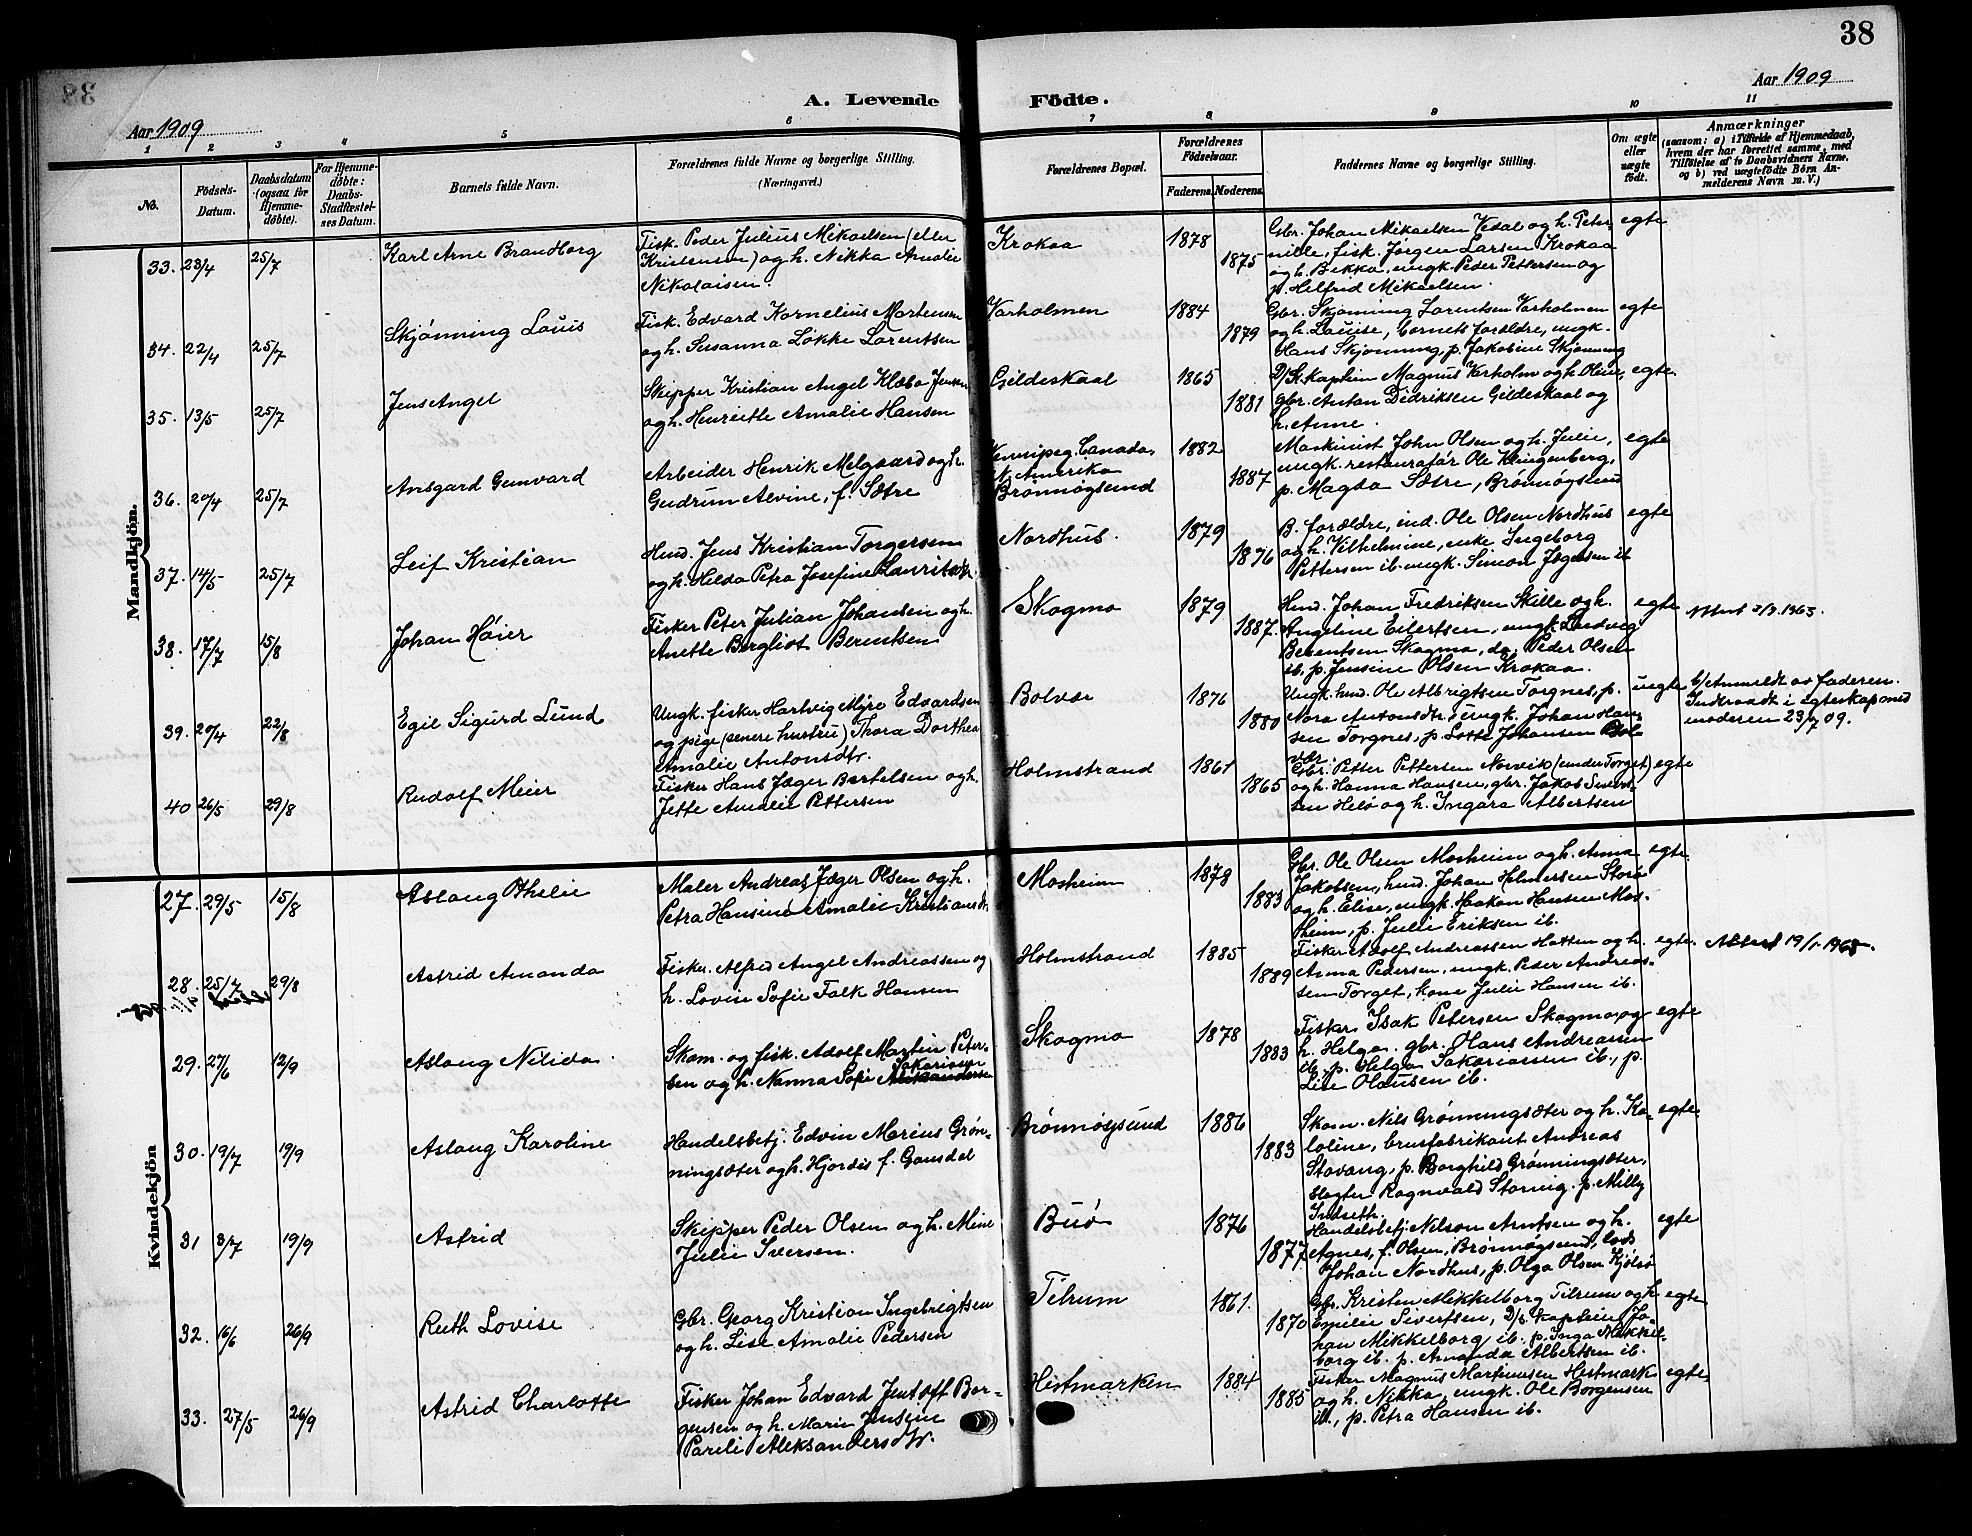 38
Aar 1909
A. Levende Födte.
Aar 1909
1 2 3 4 5 6 7 8 9 10 11
No.
Födsels-Datum.
Daabsdatum (ogsaa for Hjemmedöbte).
For Hjemmedöbte: Daabs-Stadfæstelses Datum.
Barnets fulde Navn.
Forældrenes fulde Navne og borgerlige Stilling.
(Næringsvei.)
Forældrenes Bopæl.
Forældrenes Födselsaar.
Faderens. Moderens.
Faddernes Navne og borgerlige Stilling.
Om ægte eller uægte födt.
Anmærkninger
(saasom: a) i Tilfælde af Hjemmedaab,
hvem der har forrettet samme, med
Tilföielse af to Daabsvidners Navne.
og b) ved uægtefödte Börn Anmelderens Navn m. V.)
Mandkjön.
33. 23/4 25/7 Karl Arne Brandborg
Fisk. Peder Julius Mikaelsen (eller
Kristensen) og h. Nikka Amalie
Nikolaisen.
Krokaa 1878 1875
Gbr. Johan Mikaelsen Vedal og h. Peter-
nille, fisk. Jørgen Larsen Krokaa
og h. Bekka, ungk. Peder Pettersen og
p. Helfrid Mikaelsen.
egte
34. 22/4 25/7 Skjønning Louis
Fisk. Edvard Kornelius Mortensen
og h. Susanna Løkke Lorentsen
Varholmen 1884 1879
Gbr. Skjønning Lorentsen Varholmen
og h. Louise, barnets forældre, ungk.
Hans Skjønning, p. Jakobine Skjønning
egte
35. 13/5 25/7 Jens Angel
Skipper Kristian Angel Klæbo Jensen
og h. Henriette Amalie Hansen
Gildeskaal 1865 1881
D/Sk.kaptein Magnus Varholm og h. Oline,
gbr. Antan Didriksen Gildeskaal og
h. Anne.
egte
36. 20/4 25/7 Ansgard Gunvard
Arbeider Henrik Melgaard og h.
Gudrun Alvine, f. Sætre
Vennipeg, Canada,
N. Amerika
Brønnøysund 1882 1887
Maskinist John Olsen og h. Julie,
ungk. restauratør Ole Klingenberg,
p. Magda Sætre, Brønnøysund
egte
37. 14/5 25/7 Leif Kristian
Hmd. Jens Kristian Torgersen
og h. Hilda Petra Josefine Lauritsdtr
Nordhus. 1879 1876
B. forældre, ind. Ole Olsen Nordhus
og h. Vilhelmine, enke Ingeborg
Pettersen ib. ungk. Simon ib
egte
38. 17/7 15/8 Johan Høier
Fisker Peter Julian Johansen og h.
Anette Bergliot Berntsen
Skogmo 1879 1887.
Hmd. Johan Fredriksen Skille og h.
Angeline Eilertsen, ungk. Ludvig
Berentsen Skogmo, do. Peder Olsen
ib, p. Jensine Olsen Krokaa.
egte
1963.
39. 20/4 22/8 Egil Sigurd Lund
Ungk. fisker Hartvig Myre Edvardsen
og pige (senere hustru) Thora Dorthea
Amalie Antonsdtr.
Bolvær 1876 1880
Ungk. hmd. Ole Albrigtsen Torgnes, p.
Nora Antonsdtr. ungk. Johan Han-
sen Torgnes, p. Lotte Johansen Bol-
vær.
uegte
b/ Anmeldt av faderen.
Indtraadt i egteskap med
moderen 23/7 09.
40 26/5 29/8 Rudolf Meier
Fisker Hans Jæger Bertelsen og h.
Jette Amalie Pettersen
Holmstrand 1861 1865
Gbr. Petter Pettersen Norvik (under Torget)
og h. Hanna Hansen, gbr. Jakob
sen Helø og h. Ingara Albertsen
egte
Kvindekjön
27. 29/5 15/8 Aslaug Othelie
Maler Andreas Jæger Olsen og h.
Petra Hansine Amalie Kristiansdtr
Mosheim 1878 1883
Gbr. Ole Olsen Mosheim og h. Anna
Jakobsen, hmd. Johan Helmersen Storø
og h. Elise, ungk. Haakon Hansen Mos-
heim, p. Julie Eriksen ib.
egte.
28. 25/7 29/8 Astrid Amanda
Fisker. Alfred Angel Andreassen og
h. Lovise Sofie Falk Hansen
Holmstrand 1885 1889
Fisker Adolf Andreassen Hatten og h.
Anna Pedersen, ungk. Peder Andreas-
sen Torget, kone Julie Hansen ib.
egte.
19/1-1968.
29. 27/6 12/9 Aslaug Nilida
Skom. og fisk. Adolf Martin Peter-
sen og h. Nanna Sofie Sakariasen
Skogmo 1878 1883
Fisker Isak Petersen Skogmo og
h. Helga. gbr. Olaus Andreassen
ib., p. Helga Sakariassen ib., p.
Lise Olausen ib.
egte
30. 19/7 19/9 Aslaug Karoline
Handelsbetj. Edvin Marius Grøn-
ningsæter og h. Hjørdis f. Gansdal
Brønnøysund 1886 1883
Skom. Nils Grønningsæter og h. Ka-
roline, brusfabrikant Andreas
Stavang, p. Borghild Grønningsæter,
slagter Ragnvald Storvig. p. Milly
Indseth.
egte.
31 3/7 19/9 Astrid
Skipper Peder Olsen og h. Mine
Julie Iversen.
Buø 1876 1877
Handelsbetj. Nilson Arntsen og h.
Agnes, f. Olsen, Brønnøysund, lods
Johan Nordhus, p. Olga Olsen Kjølsø
egte
32. 16/6 26/9 Ruth Lovise
Gbr. Georg Kristian Ingebrigtsen
og h. Lise Amalie Pedersen
Tilrum 1861. 1870
Gbr. Kristen Mikkelborg Tilrum og h
Emilie Sivertsen, D/S. kaptein Jo-
han Mikkelborg ib. p. Inga Mikkel-
borg ib. p. Amanda Albertsen ib.
egte
33. 27/5 26/9 Astrid Charlotte
Fisker Johan Edvard Jentoft Bor-
gensen og h. Marie Jensine
Pareli Aleksandersdtr.
Hestmarken 1884 1885
Fisker Magnus Martinusen Hestmark
og h. Nikka, ungk. Ole Borgensen
ib., p. Petra Hansen ib.
egte